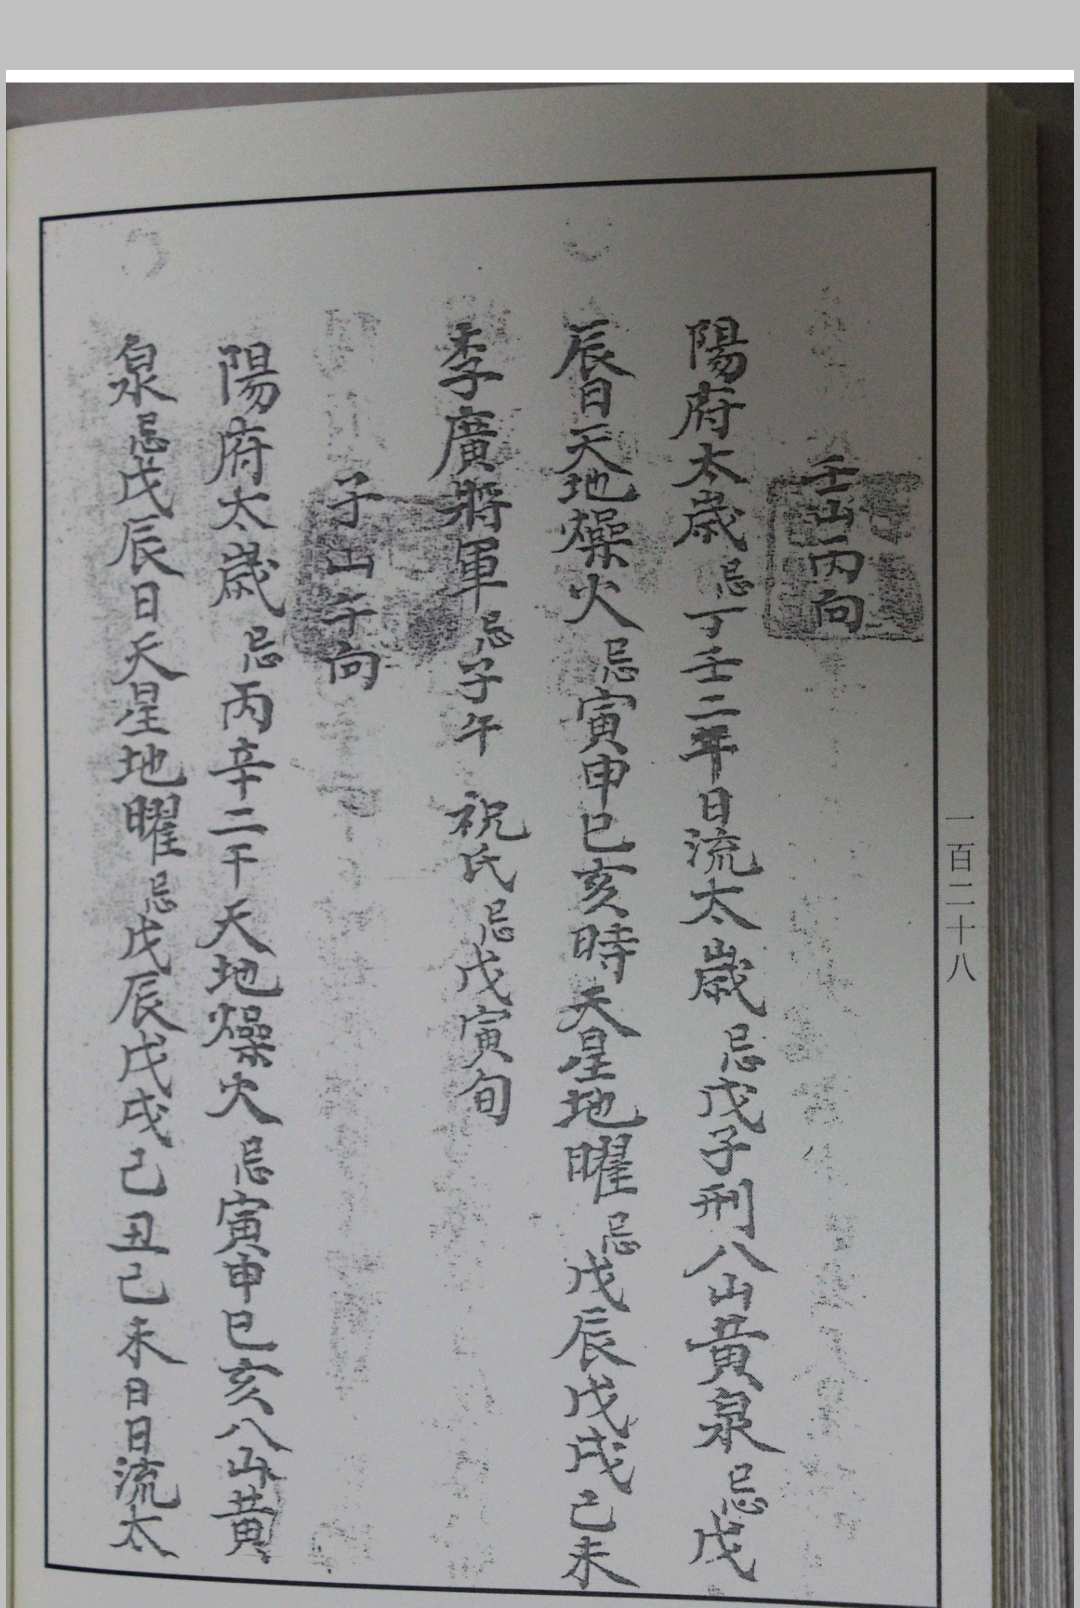 一百二十八
壬山丙向
陽府太歲忌丁壬二年日流太歲忌戊子刑八山黃泉忌戊
辰日天地燥火忌寅申巳亥時天星地曜忌戊辰戊戌己未
李廣將軍忌子午 祝氏忌戊寅旬
子山午向
陽府太歲忌丙辛二干天地燥火忌寅申巳亥八山黃
泉忌戊辰日天星地曜忌戊辰戊戌己丑己未日日流太